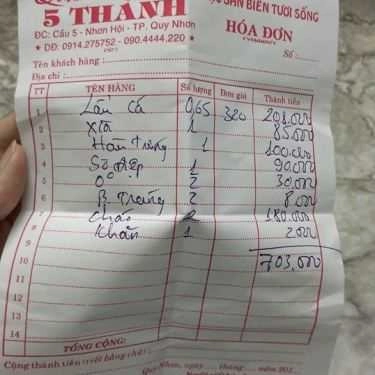 5 THÀNH
ĐC: Cầu 5 - Nhơn Hội - TP. Quy Nhơn
★ DĐ: 0914.275752 - 090.4444.220 ★
SẢN BIỂN TƯƠI SỐNG
HÓA ĐƠN
Số:
Tên khách hàng:
Địa chỉ:
TT TÊN HÀNG Số lượng Đơn giá Thành tiền
1 Lẩu Cá 0,65 320 208.000
2 1 85.000
3 1 100.000
4 1 90.000
5 2 30.000
6 B Tráng 2 8.000
7 Cháo 2 180.000
8 Khăn 1 2.000
9
10 703,000
11
12
13
14
TỔNG CỘNG:
Cộng thành tiền (viết bằng chữ):
Quy Nhơn, ngày tháng năm 202